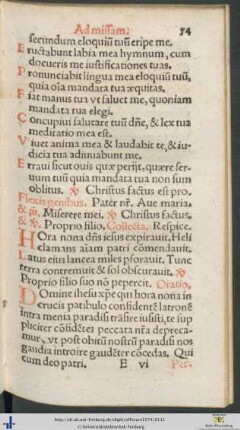 Ad missam. 54
secundum eloquiũ tuũ eripe me.
Eructabunt labia mea hymnum, cum
docueris me iustificationes tuas.
Pronunciabit lingua mea eloquiũ tuũ,
quia oĩa mandata tua æquitas.
Fiat manus tua vt saluet me, quoniam
mandata tua elegi.
Concupiui salutare tuũ dñe, & lex tua
meditatio mea est.
Viuet anima mea & laudabit te, & iu-
dicia tua adiuuabunt me.
Erraui sicut ouis quæ perijt, quære ser-
uum tuũ quia mandata tua non sum
oblitus. Christus factus est pro.
Flexis genibus. Pater nr̃. Aue maria.
& Miserere mei. Christus factus.
& Proprio filio. Collecta. Respice.
Hora nona dñs iesus expirauit. Heli
clamans aĩam patri cõmendauit.
Latus eius lancea miles pforauit. Tunc
terra contremuit & sol obscurauit.
Proprio filio suo nõ pepercit. Oratio.
Domine ihesu xp̃e qui hora nona in
crucis patibulo confidentẽ latronẽ
intra menia paradisi trãsire iusisti, te sup
pliciter cõfidẽtes peccata nr̃a depreca-
mur, vt post obitũ nostrũ paradisi nos
gaudia introire gaudẽter cõcedas. Qui
cum deo patri. E vi Per-
© Universitätsbibliothek Freiburg